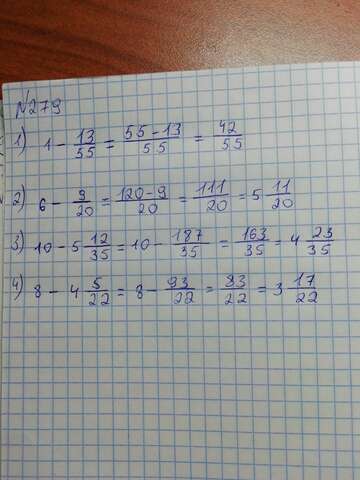 №279
1) 1 - 13/55 = 55-13/55 = 42/55
2) 6 - 9/20 = 120-9/20 = 111/20 = 5 11/20
3) 10 - 5 12/35 = 10 - 187/35 = 163/35 = 4 23/35
4) 8 - 4 5/22 = 8 - 93/22 = 83/22 = 3 17/22